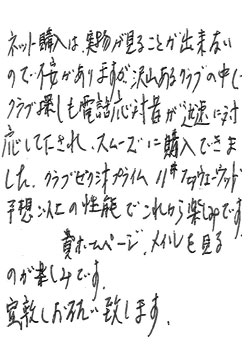 ネット購入は、実物が見ることが出来ない
ので不安がありますが、沢山あるクラブの中で
クラブ探しも電話応対者が迅速に対
応して下され、スムーズに購入できま
した。クラブゼクシオプライム 11#フェアウェーウッド
予想以上の性能でこれから楽しみです。
貴ホームページ、メイルを見る
のが楽しみです。
宜敷しお願い致します。